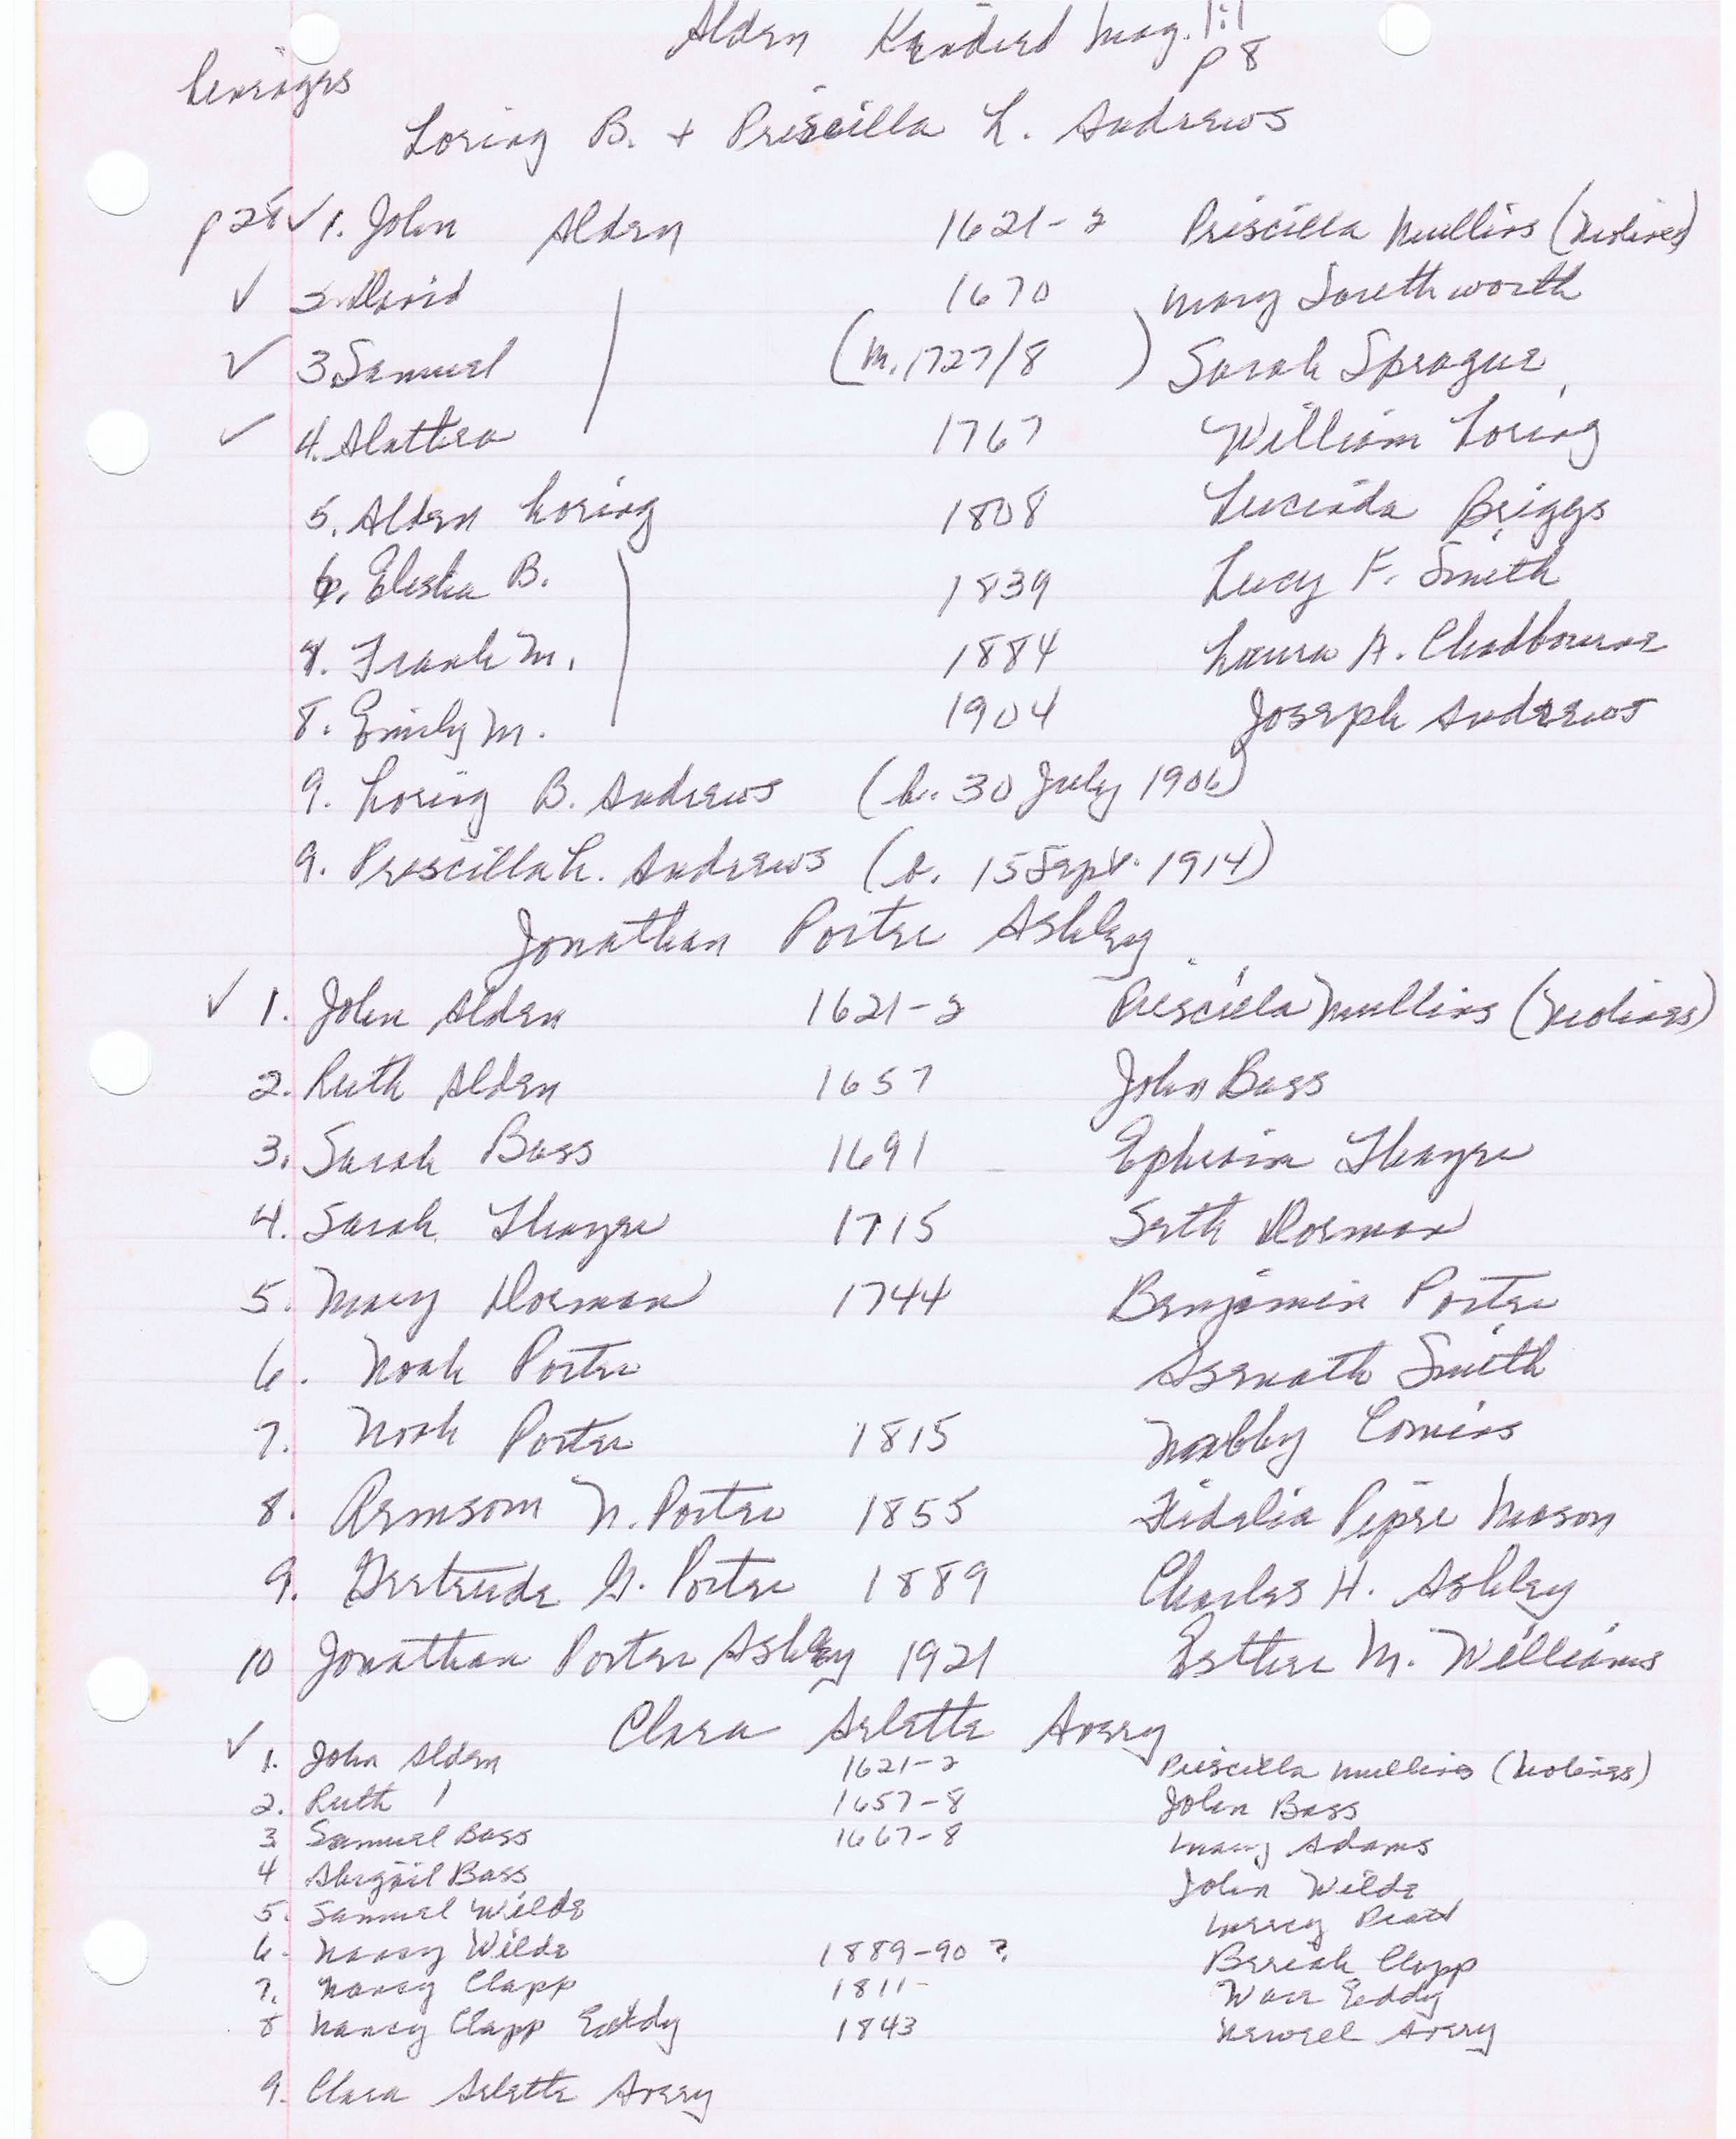 Alden Kindred Mag. 1:1
p 8
Lineages
Loring B. + Priscilla L. Andrews
p 28 ✓ 1. John Alden 1621-2 Priscilla Mullins (Molines)
✓ 2. David 1670 Mary Southworth
✓ 3. Samuel (m. 1727/8) Sarah Sprague
✓ 4. Alathea 1767 William Loring
5. Alden Loring 1808 Lucinda Briggs
6. Elisha B. 1839 Lucy F. Smith
7. Frank M. 1884 Laura A. Chadbourne
8. Emily M. 1904 Joseph Andrews
9. Loring B. Andrews (b. 30 July 1906)
9. Priscilla L. Andrews (b. 15 Sept. 1914)
Jonathan Porter Ashley
✓ 1. John Alden 1621-2 Priscilla Mullins (Molines)
2. Ruth Alden 1657 John Bass
3. Sarah Bass 1691 Ephraim Thayer
4. Sarah Thayer 1715 Seth Dorman
5. Mary Dorman 1744 Benjamin Porter
6. Noah Porter Asenath Smith
7. Noah Porter 1815 Nabby Comins
8. Remsom N. Porter 1855 Fidelia Piper Mason
9. Gertrude G. Porter 1889 Charles H. Ashley
10 Jonathan Porter Ashley 1921 Esther M. Williams
Clara Arlette Avery
✓ 1. John Alden 1621-2 Priscilla Mullins (Molines)
2. Ruth 1657-8 John Bass
3 Samuel Bass 1667-8 Mary Adams
4 Abigail Bass John Wilde
5. Samuel Wilde
6. Nancy Wilde 1889-90 ? Beriah Clapp
7. Nancy Clapp 1811- Ware Eddy
8 Nancy Clapp Eddy 1843 Newell Avery
9. Clara Arlette Avery